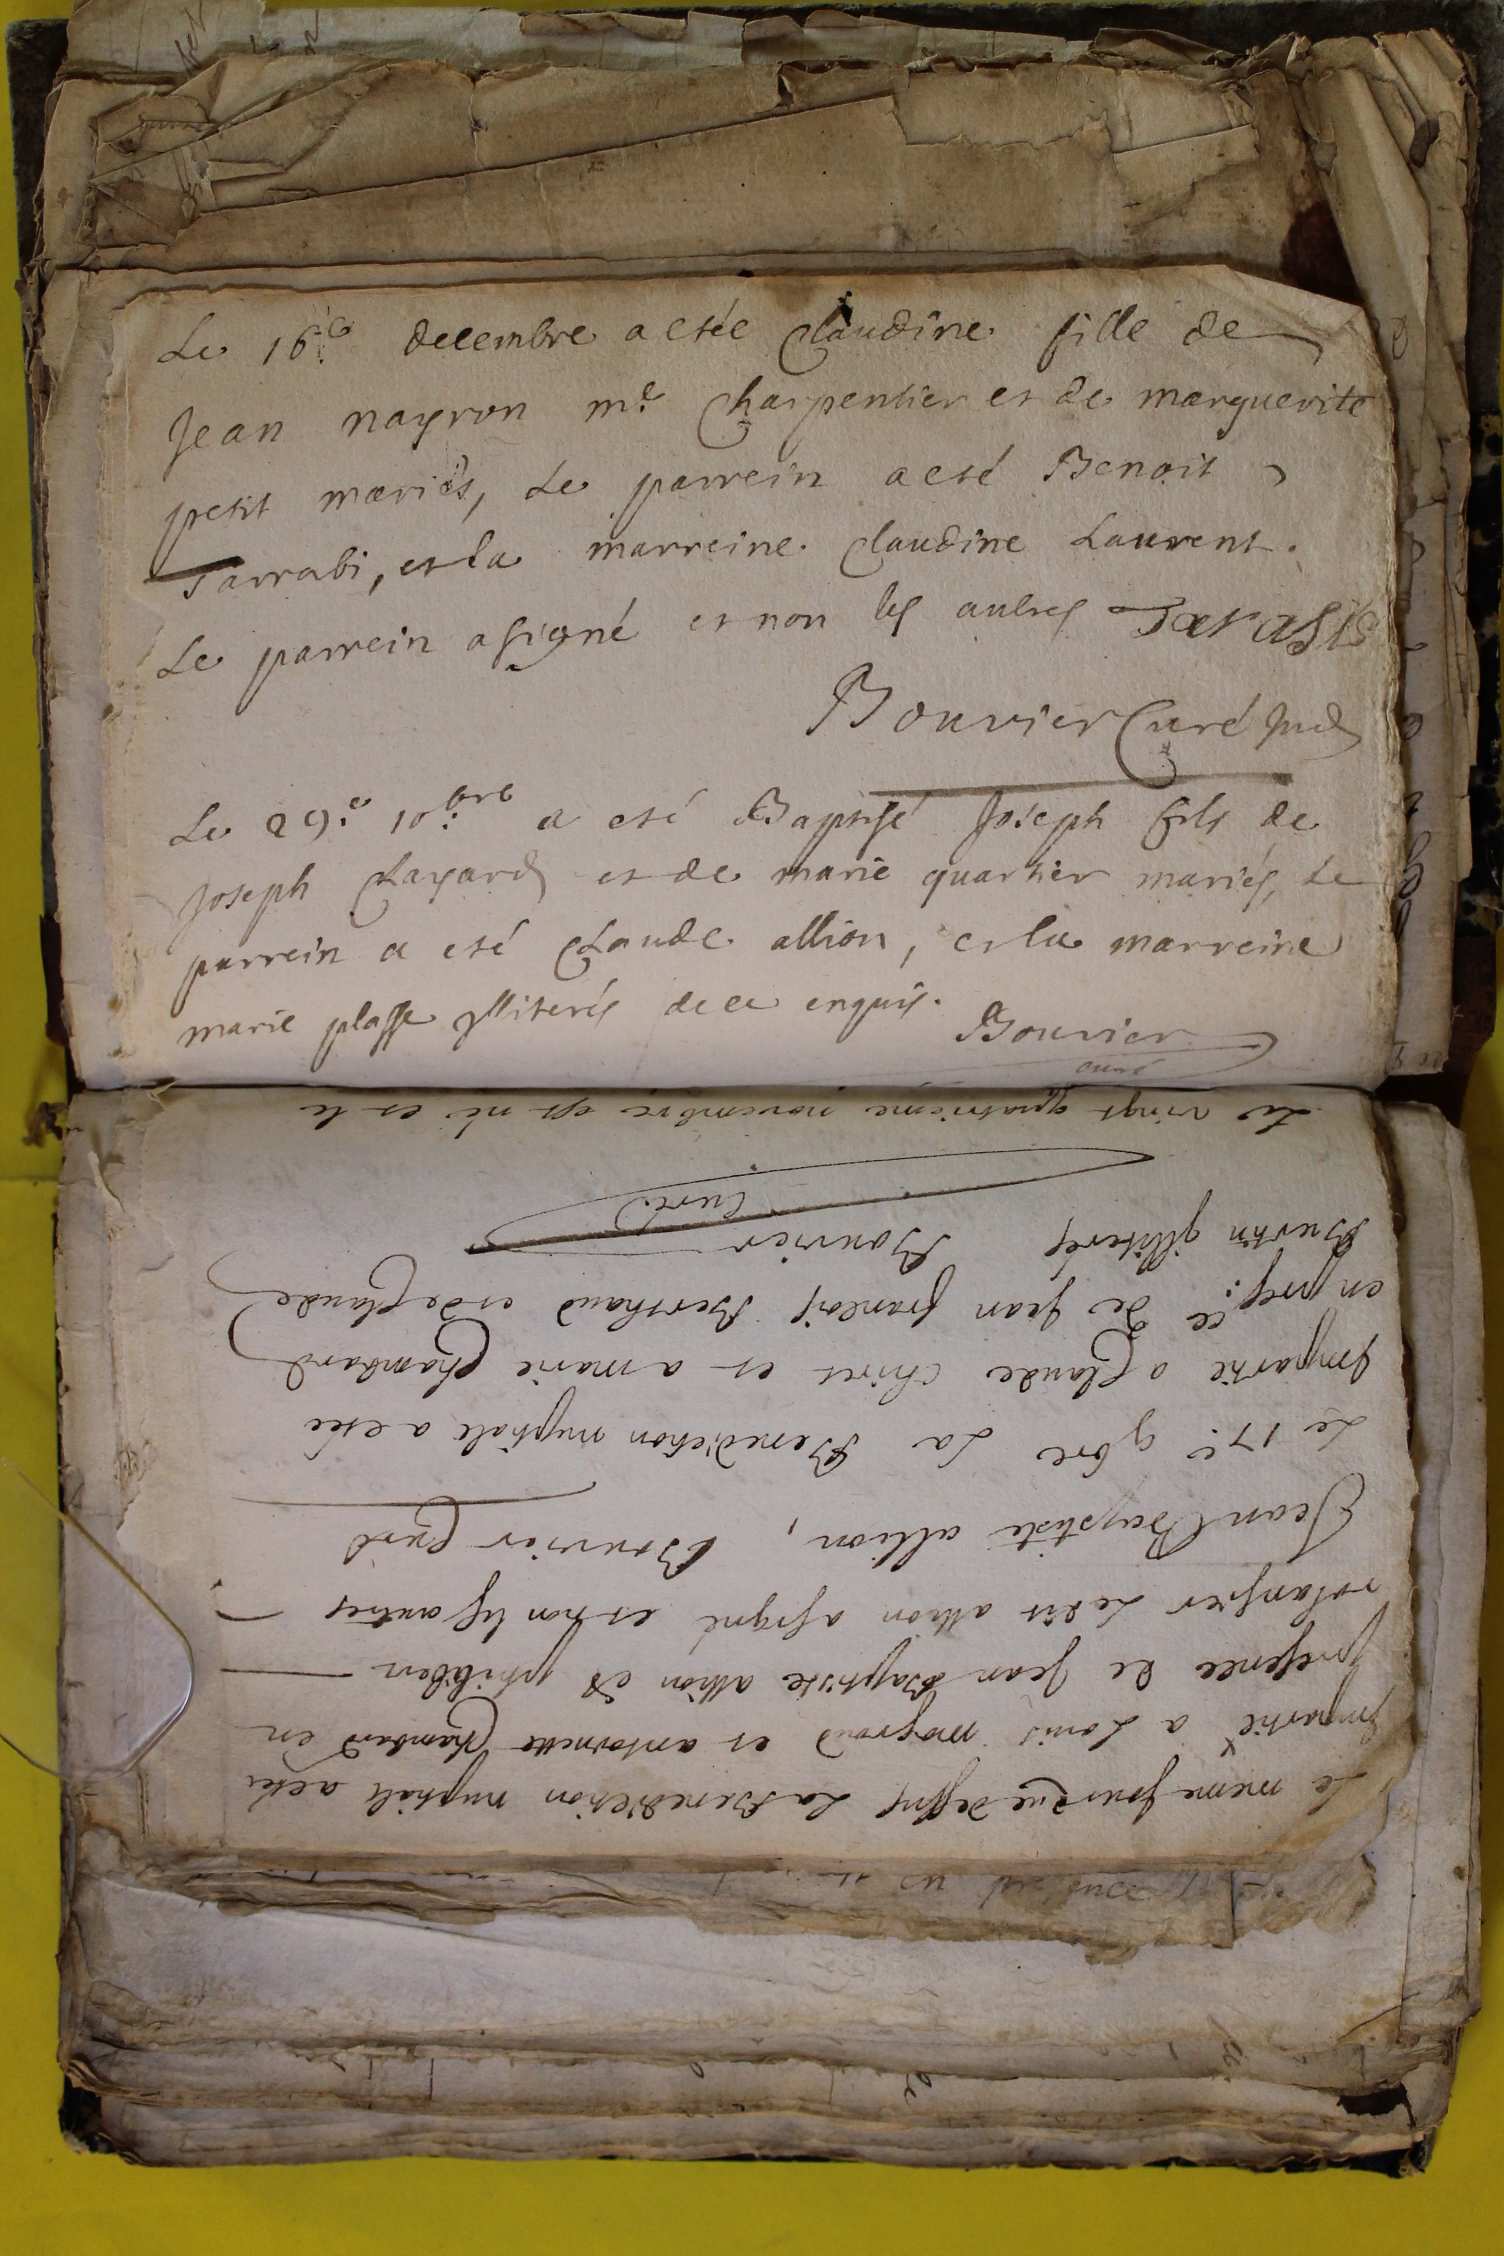 Le 16.e decembre a etée Claudine fille de
Jean nayron m.e Charpentier et de marguerite
petit mariés, Le parrein a eté Benoit
Tarrabi, et la marreine Claudine Laurent.
Le parrein a signé et non les autres
Bouvier Curé
Le 29.e 10.bre a eté Baptisé Joseph fils de
Joseph Chayard et de marie quartier mariés, Le
parrein a eté Claude allion, et la marreine
marie plasse jlliterés de ce enquis.
Bouvier
curé
Le même jour que dessus La Benediction nuptiale a etée
jmpartie a Louis et antoinette Chambard en
presence de Jean Baptiste allion et philibert
Ledit allion a signé et non les autres
Jean Baptiste allion, Bouvier Curé
Le 17.e 9bre La Benediction nuptiale a etée
jmpartie a Claude chiret et a marie Chambard
en pres.ce de Jean francois Berthaud et de Claude
Burtin jlliterés Bouvier
Curé
Le vingt quatrieme novembre est né et le